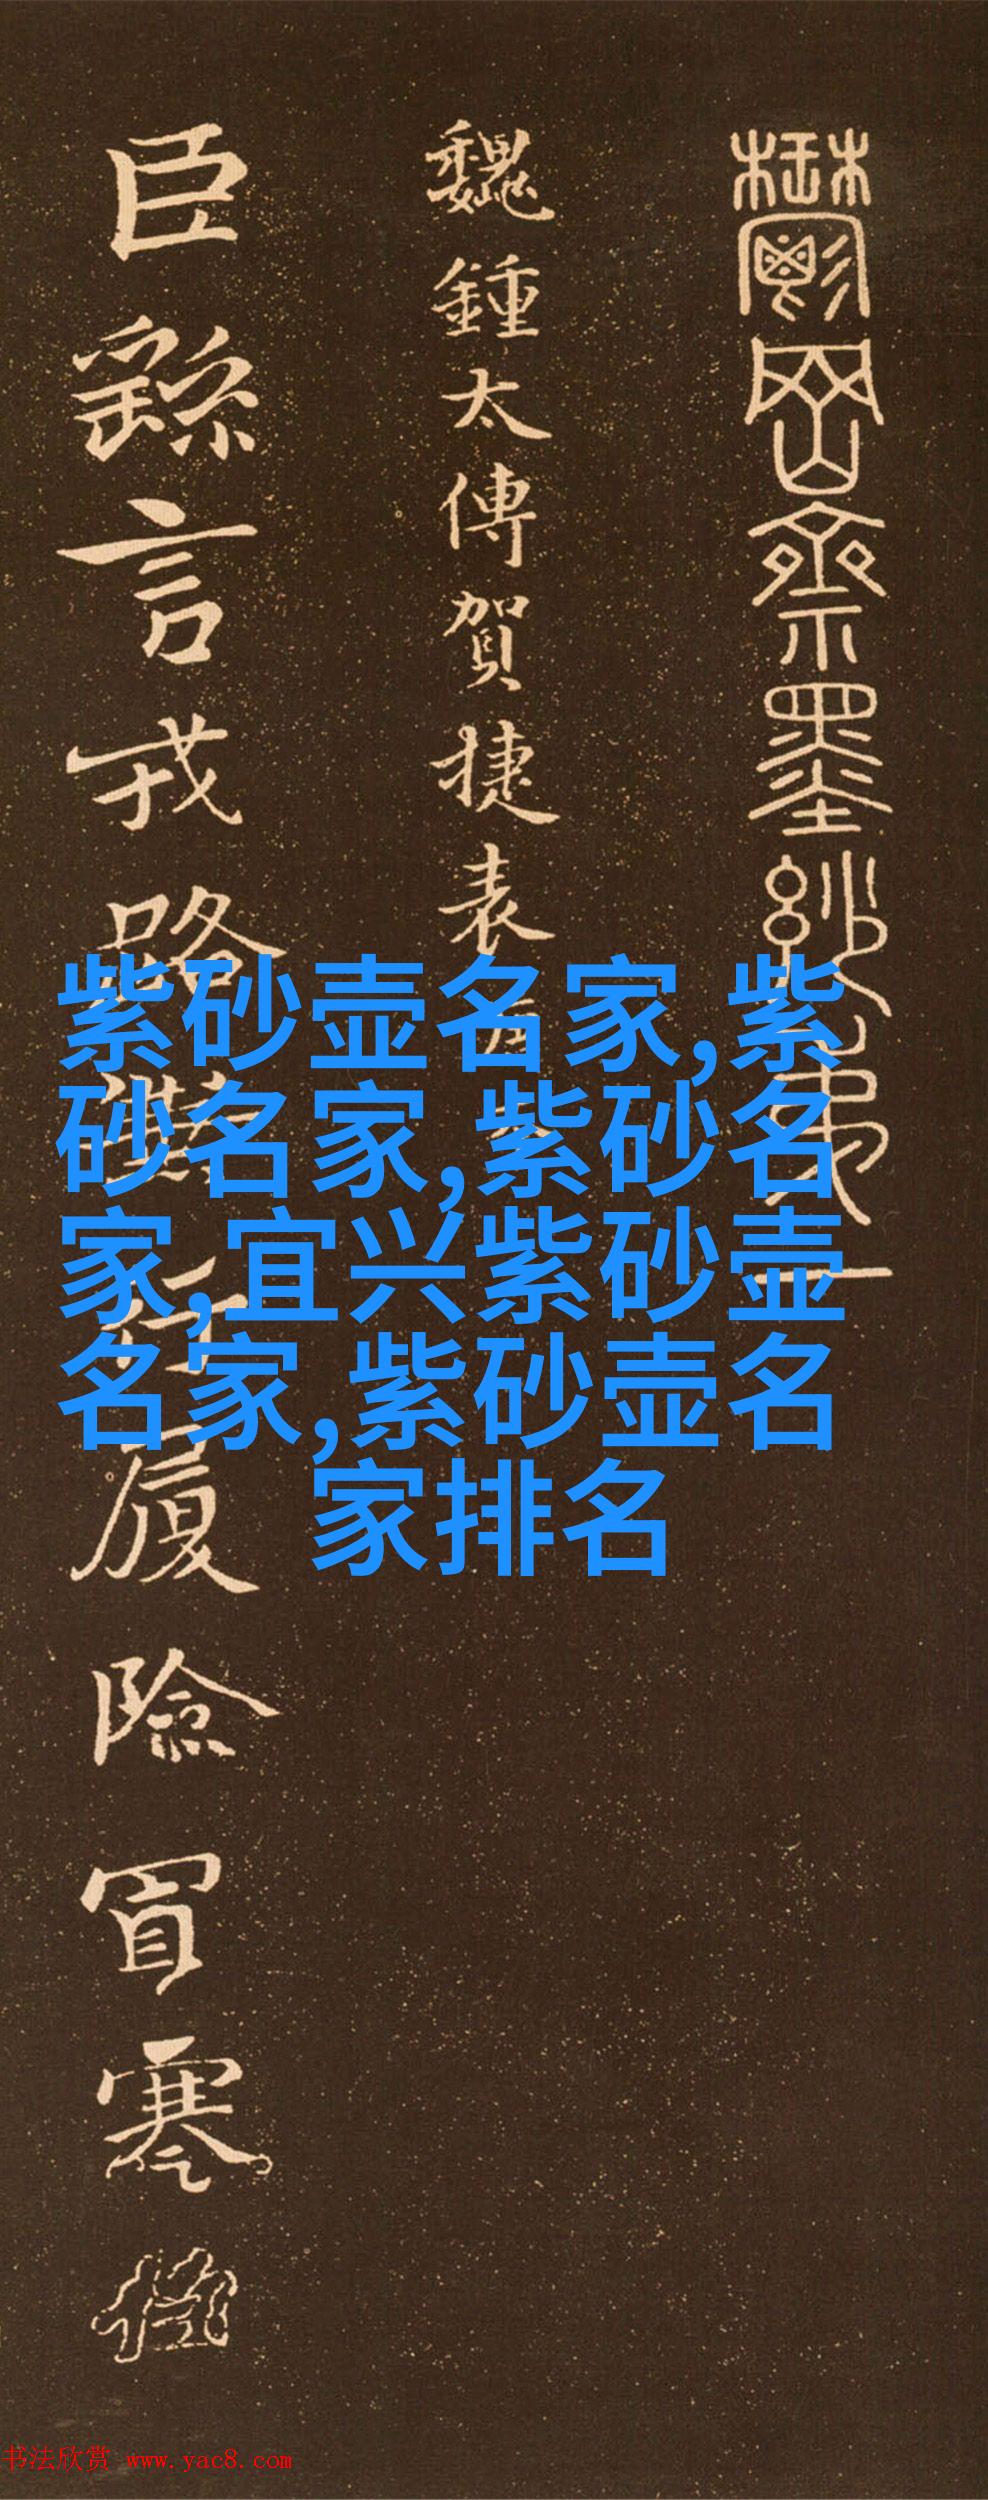 鬱岡齋墨玅弟一
魏鍾太傅賀捷表
臣繇言戎路兼行履險冒寒
紫砂壶名家,紫
砂名家,紫砂名
家,宜兴紫砂壶
名家,紫砂壶名
家排名
书法欣赏 www.yac8.com